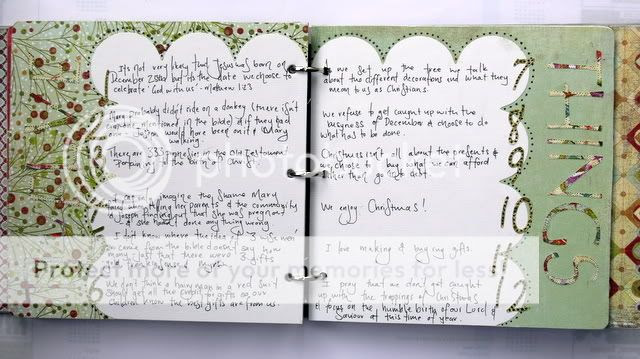 It's not very likely that Jesus was born on
December 25th but it's the date we choose to
celebrate 'God with us' - Matthew 1:23
didn't ride on a donkey (there isn't
mentioned in the bible) if they had
would have been on it & Mary
walking.
There are 333 prophesies in the Old Testament
the birth of Christ.
imagine the shame Mary
her parents & the community
& Joseph finding out that she was pregnant
& she hadn't done anything wrong
I did know where the
came from the bible doesn't say how
many just that there were 3 gifts
We don't think a hairy man in a red suit
should get all the credit for gifts so our
children know the best gifts are from us.
we set up the tree we talk
about the different decorations and what they
mean to us as Christians.
We refuse to get caught up with the
busyness of December & choose to do
what has to be done.
Christmas isn't all about the presents &
we choose to buy what we can afford
rather than go into debt.
We enjoy Christmas!
I love making & buying gifts.
I pray that we don't get caught
up with the trappings of Christmas
& focus on the humble birth of our Lord &
Saviour at this time of year.
7
8
9
10
11
12
THINGS
Protect more of your memories for less!